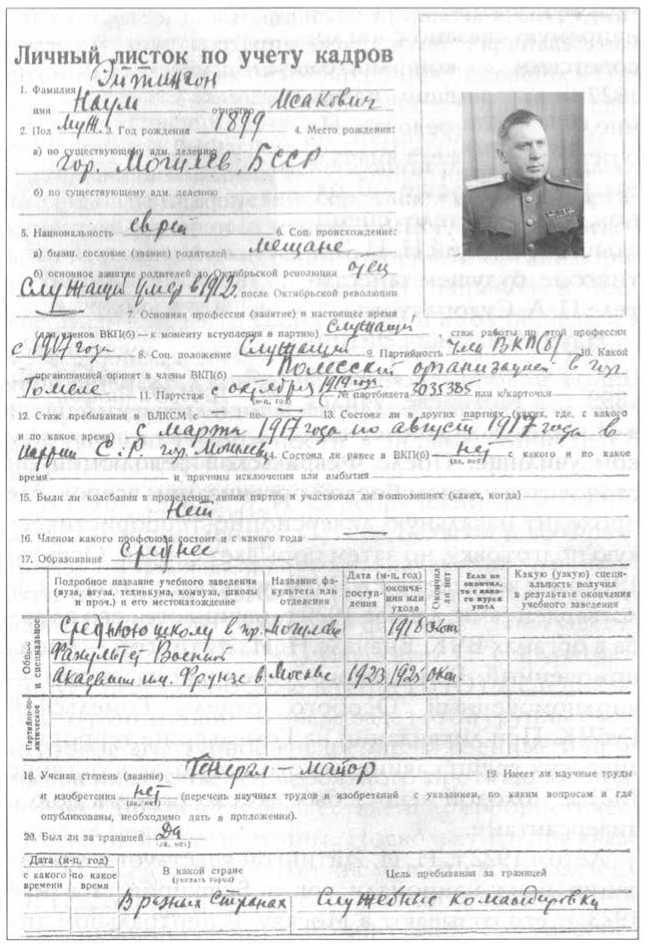 Личный листок по учету кадров
1. Фамилия Эйтингон
имя Наум отчество Исакович
2. Пол муж. 3. Год рождения 1899 4. Место рождения:
а) по существовавшему адм. делению
гор. Могилев, БССР
б) по существующему адм. делению
5. Национальность еврей 6. Соц. происхождение:
а) бывш. сословие (звание) родителей мещане
б) основное занятие родителей до Октябрьской революции отец
служащий умер в 1912 г. после Октябрьской революции
7. Основная профессия (занятие) и настоящее время
(для членов ВКП(б) — к моменту вступления в партию) служащий, стаж работы по этой профессии
с 1917 года 8. Соц. положение служащий 9. Партийность член ВКП(б) 10. Какой
организацией принят в члены ВКП(б) Полесской организацией в гор.
Гомеле 11. Партстаж с октября 1919 года (м-ц, год) № партбилета 2035385 или к/карточки
12. Стаж пребывания в ВЛКСМ с — по — 13. Состоял ли в других партиях (каких, где, с какого
и по какое время) с марта 1917 года по август 1917 года в
партии С.-Р. гор. Могилев 14. Состоял ли ранее в ВКП(б) нет (да, нет) с какого и по какое
время и причины исключения или выбытия
15. Были ли колебания в проведении линии партии и участвовал ли в оппозициях (каких, когда)
Нет
16. Членом какого профсоюза состоит и с какого года —
17. Образование среднее
Подробное название учебного заведения (вуза, втуза, техникума, комвуза, школы и проч.) и его местонахождение
Название факультета или отделения
Дата (м-ц, год)
поступления
окончания или ухода
Окончил ли нет
Если не окончил, то с какого курса ушел
Какую (узкую) специальность получил в результате окончания учебного заведения
Общее и специальное
Среднюю школу в гор. Могилеве 1918 Окон
Факультет Военной
Академии им. Фрунзе в Москве 1923 1925 Окон
Партийно-политическое
18. Ученая степень (звание) Генерал-майор 19. Имеет ли научные труды
и изобретения нет (да, нет) (перечень научных трудов и изобретений с указанием, по каким вопросам и где
опубликованы, необходимо дать в приложении).
20. Был ли за границей Да (да, нет)
Дата (м-ц, год)
с какого времени
по какое время
В какой стране (указать город)
Цель пребывания за границей
В разных странах Служебные командировки